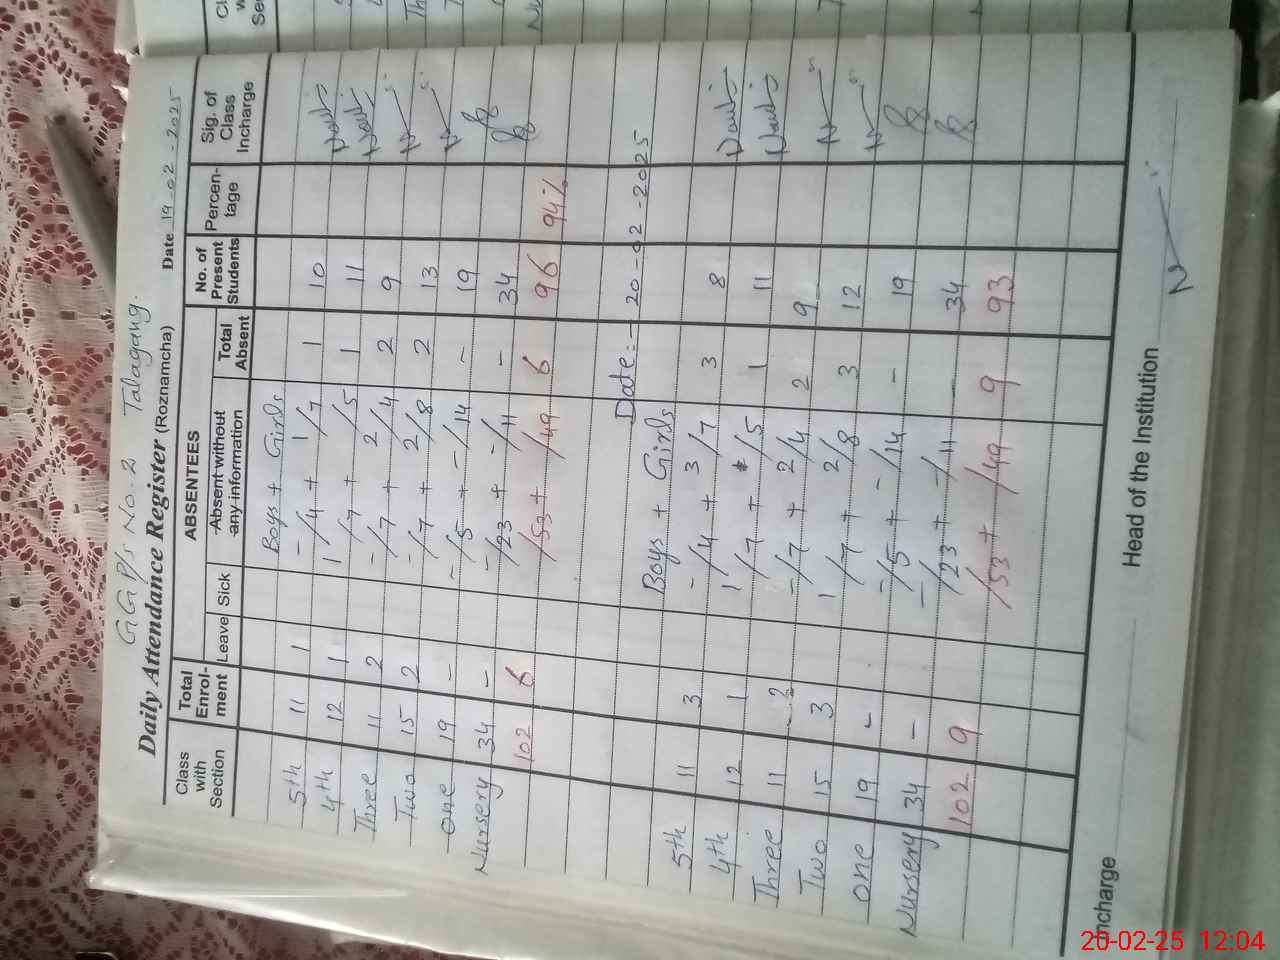 GGP/s No. 2 Talagang.
Daily Attendance Register (Roznamcha) Date 19-02-2025
Class with Section Total Enrol-ment ABSENTEES Leave Sick Absent without any information Total Absent No. of Present Students Percen-tage Sig. of Class Incharge
Boys + Girls
5th 11 1 -/4 + 1/7 1 10
4th 12 1 1/7 + -/5 1 11
Three 11 2 -/7 + 2/4 2 9
Two 15 2 -/7 + 2/8 2 13
one 19 - -/5 + -/14 - 19
Nursery 34 - -/23 + -/11 - 34
102 6 /53 + /49 6 96 94%
Date:- 20-02-2025
Boys + Girls
5th 11 3 -/4 + 3/7 3 8
4th 12 1 1/7 + /5 1 11
Three 11 2 -/7 + 2/4 2 9
Two 15 3 1/7 + 2/8 3 12
one 19 - -/5 + -/14 - 19
Nursery 34 - -/23 + -/11 - 34
102 9 /53 + /49 9 93
Incharge Head of the Institution
20-02-25 12:04